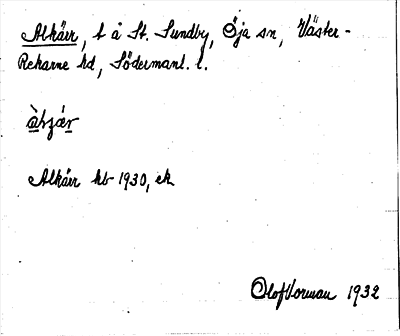 Alkärr, t å St. Sundby, Öja sn, Väster-
Rekarne hd, Södermanl. l.
Alkärr hb 1930, ek
Olof Vorman 1932